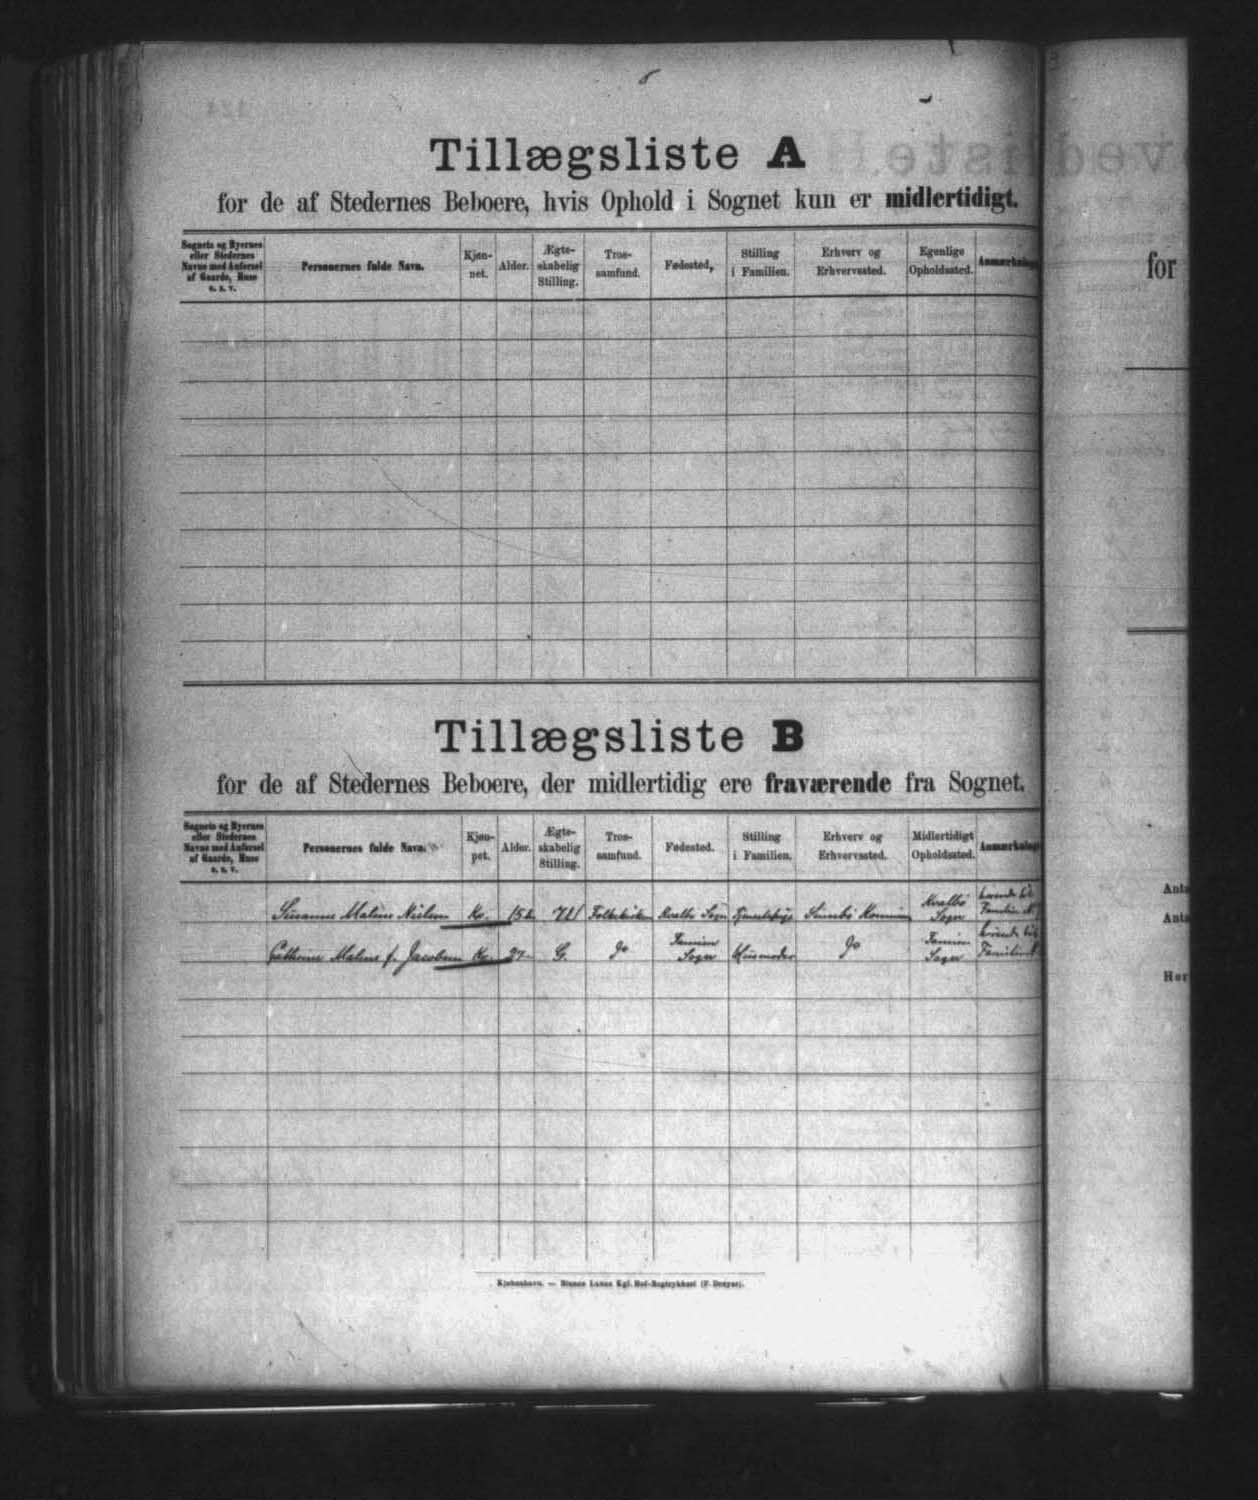 Tillægsliste A
for de af Stedernes Beboere, hvis Ophold i Sognet kun er midlertidigt.
Sognets og Byernes eller Stedernes Navne med Anførsel af Gaarde, Huse o. s. v.
Personernes fulde Navn.
Kjøn-
net.
Alder.
Ægte-
skabelig
Stilling.
Tros-
samfund.
Fødested,
Stilling
i Familien.
Erhverv og
Erhvervssted.
Egenlige
Opholdssted.
for
Tillægsliste B
for de af Stedernes Beboere, der midlertidig ere fraværende fra Sognet.
Sognets og Byernes eller Stedernes Navne med Anførsel af Gaarde, Huse o. s. v.
Personernes fulde Navn.
Kjøn-
net.
Alder.
Ægte-
skabelig
Stilling.
Tros-
samfund.
Fødested.
Stilling
i Familien.
Erhverv og
Erhvervssted.
Midlertidigt
Opholdssted.
Susanne Maline Nielsen Kv. Folkekirken Kvalbø Sogn Kvalbø Sogn
Cathrine Maline f. Jacobsen Kv. 27 G. Do Famien Sogn Husmoder Do Famien Sogn
Kjøbenhavn. — Bianco Lunos Kgl. Hof-Bogtrykkeri (F. Dreyer).